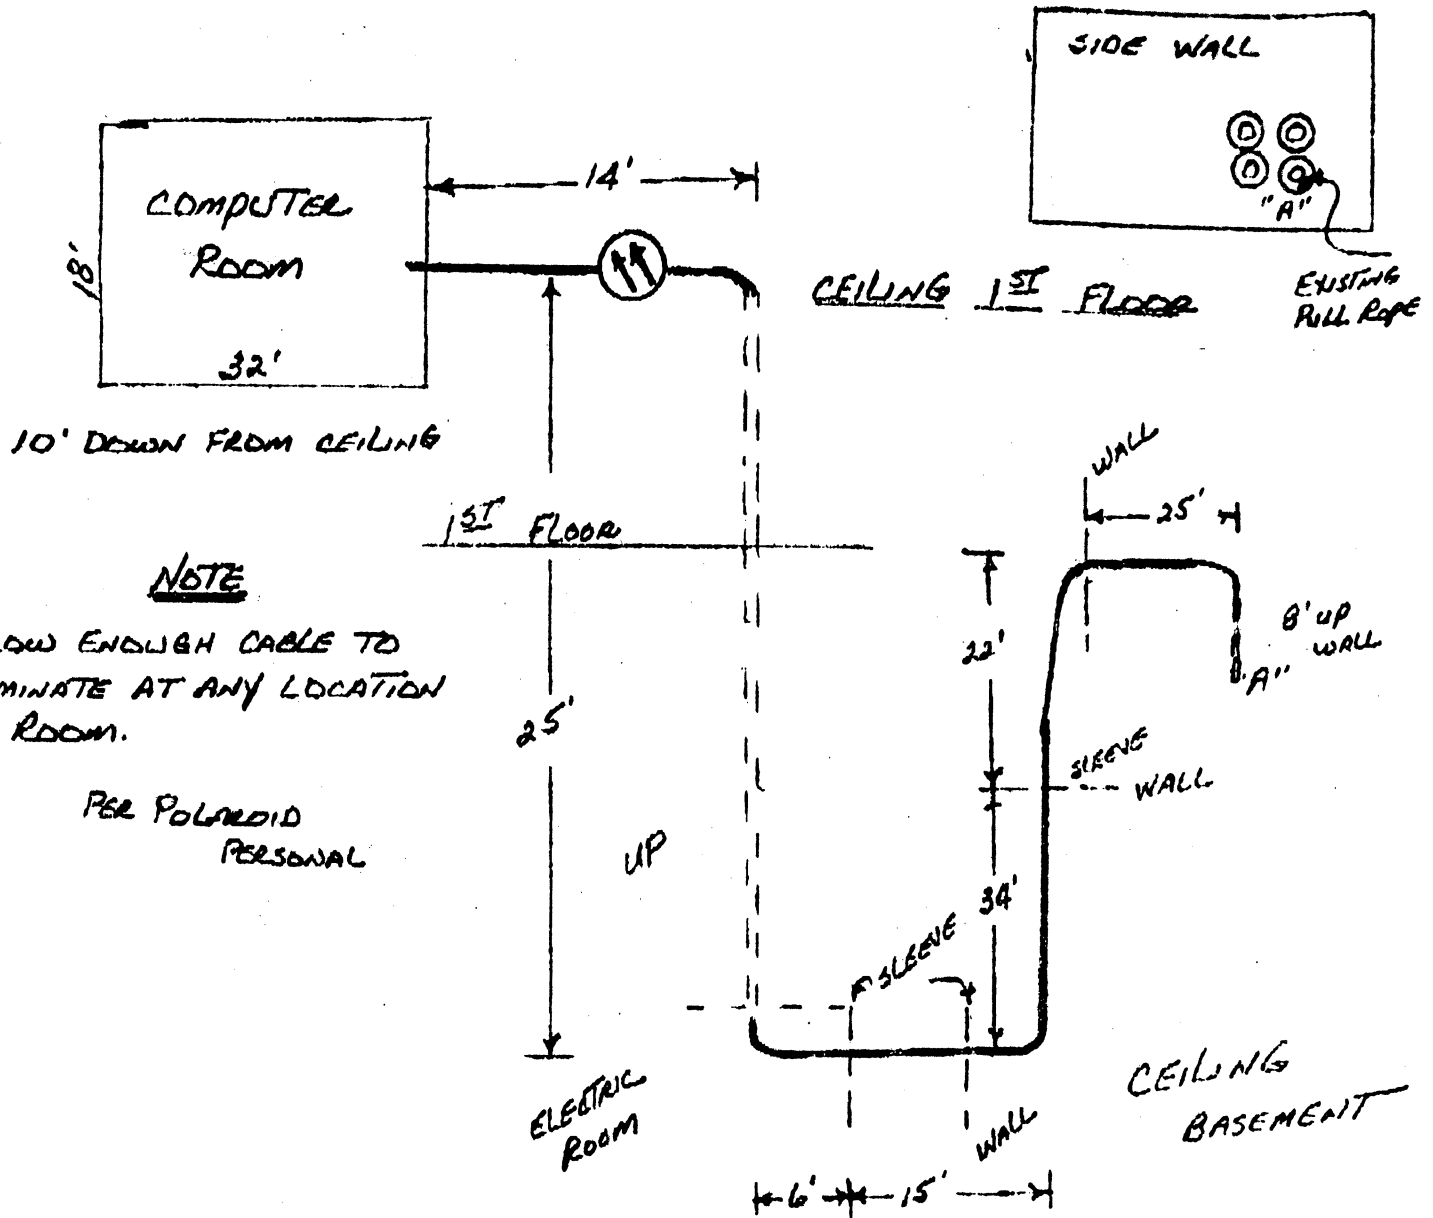 SIDE WALL
"A"
EXISTING
PULL ROPE
14'
COMPUTER
ROOM
18'
32'
CEILING 1ST FLOOR
10' DOWN FROM CEILING
1ST FLOOR
WALL
25'
NOTE
LOW ENOUGH CABLE TO
MINATE AT ANY LOCATION
ROOM.
PER POLAROID
PERSONAL
22'
8' UP
WALL
"A"
25'
SLEEVE
WALL
UP
34'
SLEEVE
ELECTRIC
ROOM
WALL
CEILING
BASEMENT
6'
15'